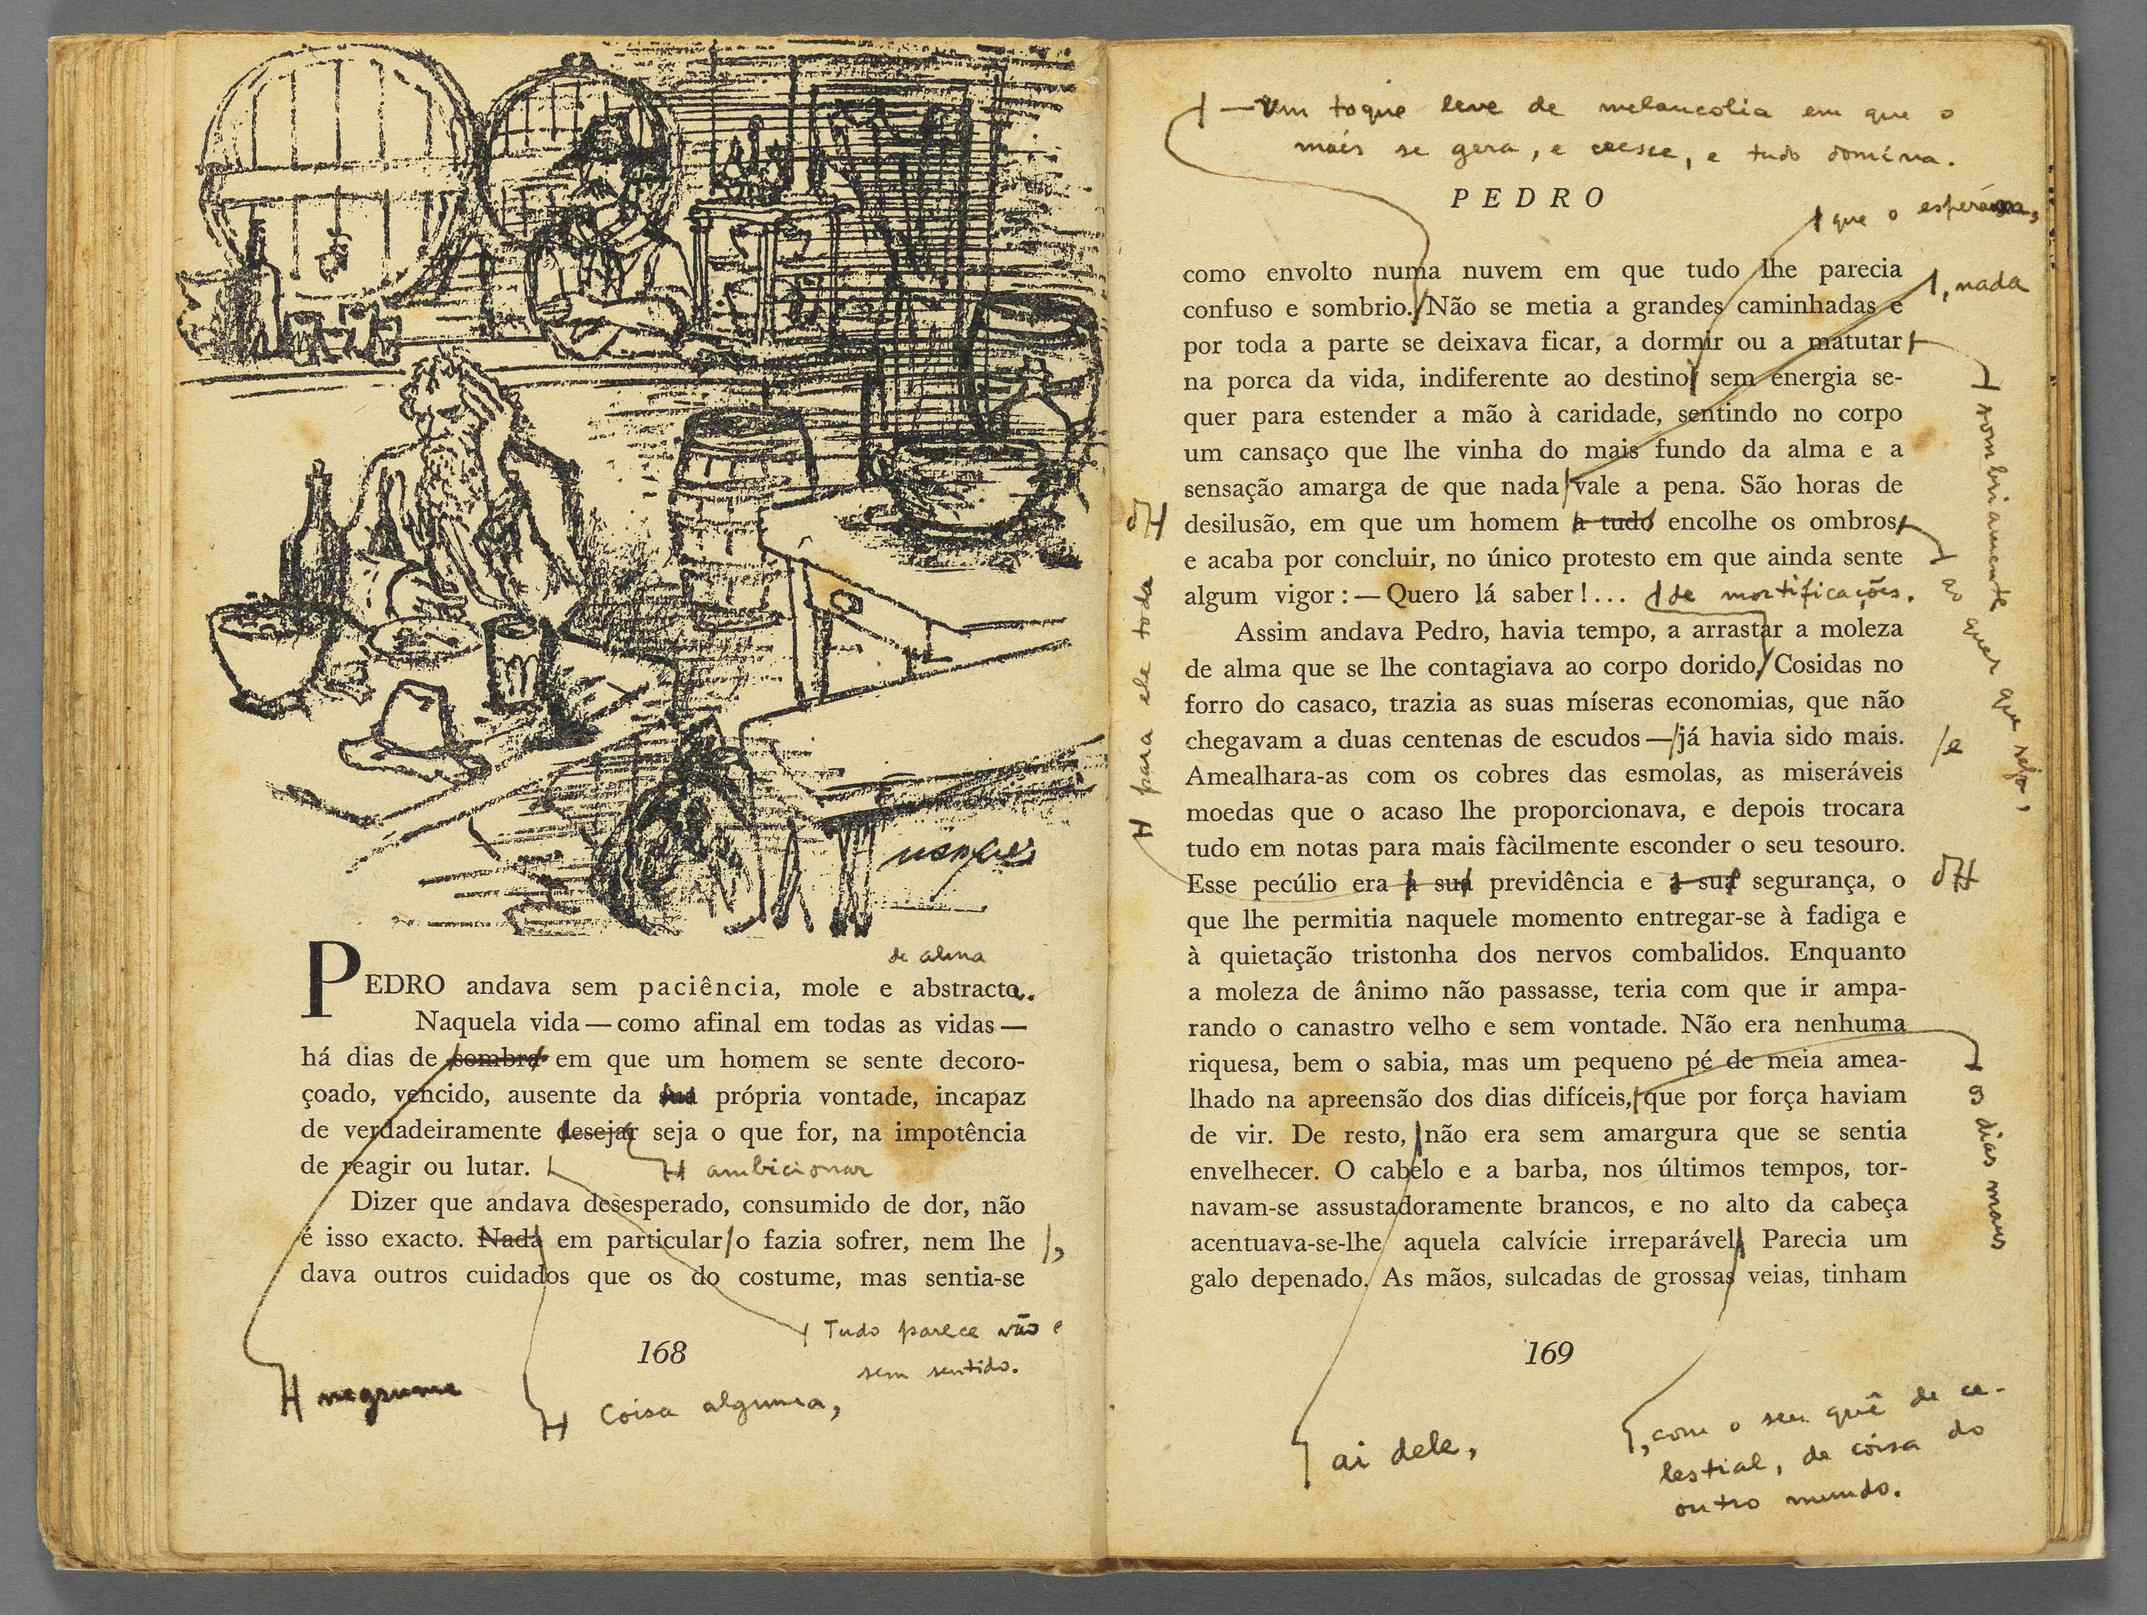 de alma
PEDRO andava sem paciência, mole e abstracto.
Naquela vida — como afinal em todas as vidas —
há dias de sombra em que um homem se sente decoro-
çoado, vencido, ausente da sua própria vontade, incapaz
de verdadeiramente desejar seja o que for, na impotência
de reagir ou lutar.
H ambicionar
Dizer que andava desesperado, consumido de dor, não
é isso exacto. Nada em particular o fazia sofrer, nem lhe /,
dava outros cuidados que os do costume, mas sentia-se
Tudo parece vão e
sem sentido.
168
H negrume
H Coisa alguma,
— Um toque leve de melancolia em que o
mais se gera, e cresce, e tudo domina.
PEDRO
que o esperava,
como envolto numa nuvem em que tudo lhe parecia
, nada
confuso e sombrio. Não se metia a grandes caminhadas e
por toda a parte se deixava ficar, a dormir ou a matutar
na porca da vida, indiferente ao destino, sem energia se-
quer para estender a mão à caridade, sentindo no corpo
um cansaço que lhe vinha do mais fundo da alma e a
sensação amarga de que nada vale a pena. São horas de
desilusão, em que um homem a tudo encolhe os ombros,
e acaba por concluir, no único protesto em que ainda sente
algum vigor: — Quero lá saber!... de mortificações.
Assim andava Pedro, havia tempo, a arrastar a moleza
de alma que se lhe contagiava ao corpo dorido. Cosidas no
forro do casaco, trazia as suas míseras economias, que não
chegavam a duas centenas de escudos — já havia sido mais. /e
Amealhara-as com os cobres das esmolas, as miseráveis
moedas que o acaso lhe proporcionava, e depois trocara
tudo em notas para mais fàcilmente esconder o seu tesouro.
Esse pecúlio era a sua previdência e a sua segurança, o
que lhe permitia naquele momento entregar-se à fadiga e
à quietação tristonha dos nervos combalidos. Enquanto
a moleza de ânimo não passasse, teria com que ir ampa-
rando o canastro velho e sem vontade. Não era nenhuma
riquesa, bem o sabia, mas um pequeno pé de meia amea-
lhado na apreensão dos dias difíceis, que por força haviam
de vir. De resto, não era sem amargura que se sentia
envelhecer. O cabelo e a barba, nos últimos tempos, tor-
navam-se assustadoramente brancos, e no alto da cabeça
acentuava-se-lhe aquela calvície irreparável. Parecia um
galo depenado. As mãos, sulcadas de grossas veias, tinham
H para ele toda
sombriamente
ao quer que seja,
os dias maus
169
ai dele,
, com o seu quê de ce-
lestial, de coisa do
outro mundo.